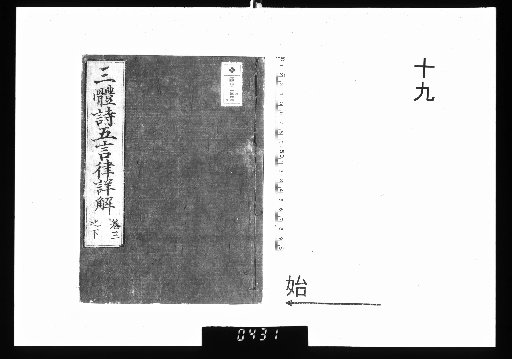 十九
三體詩五言律詳解
卷三
之下
始
0431